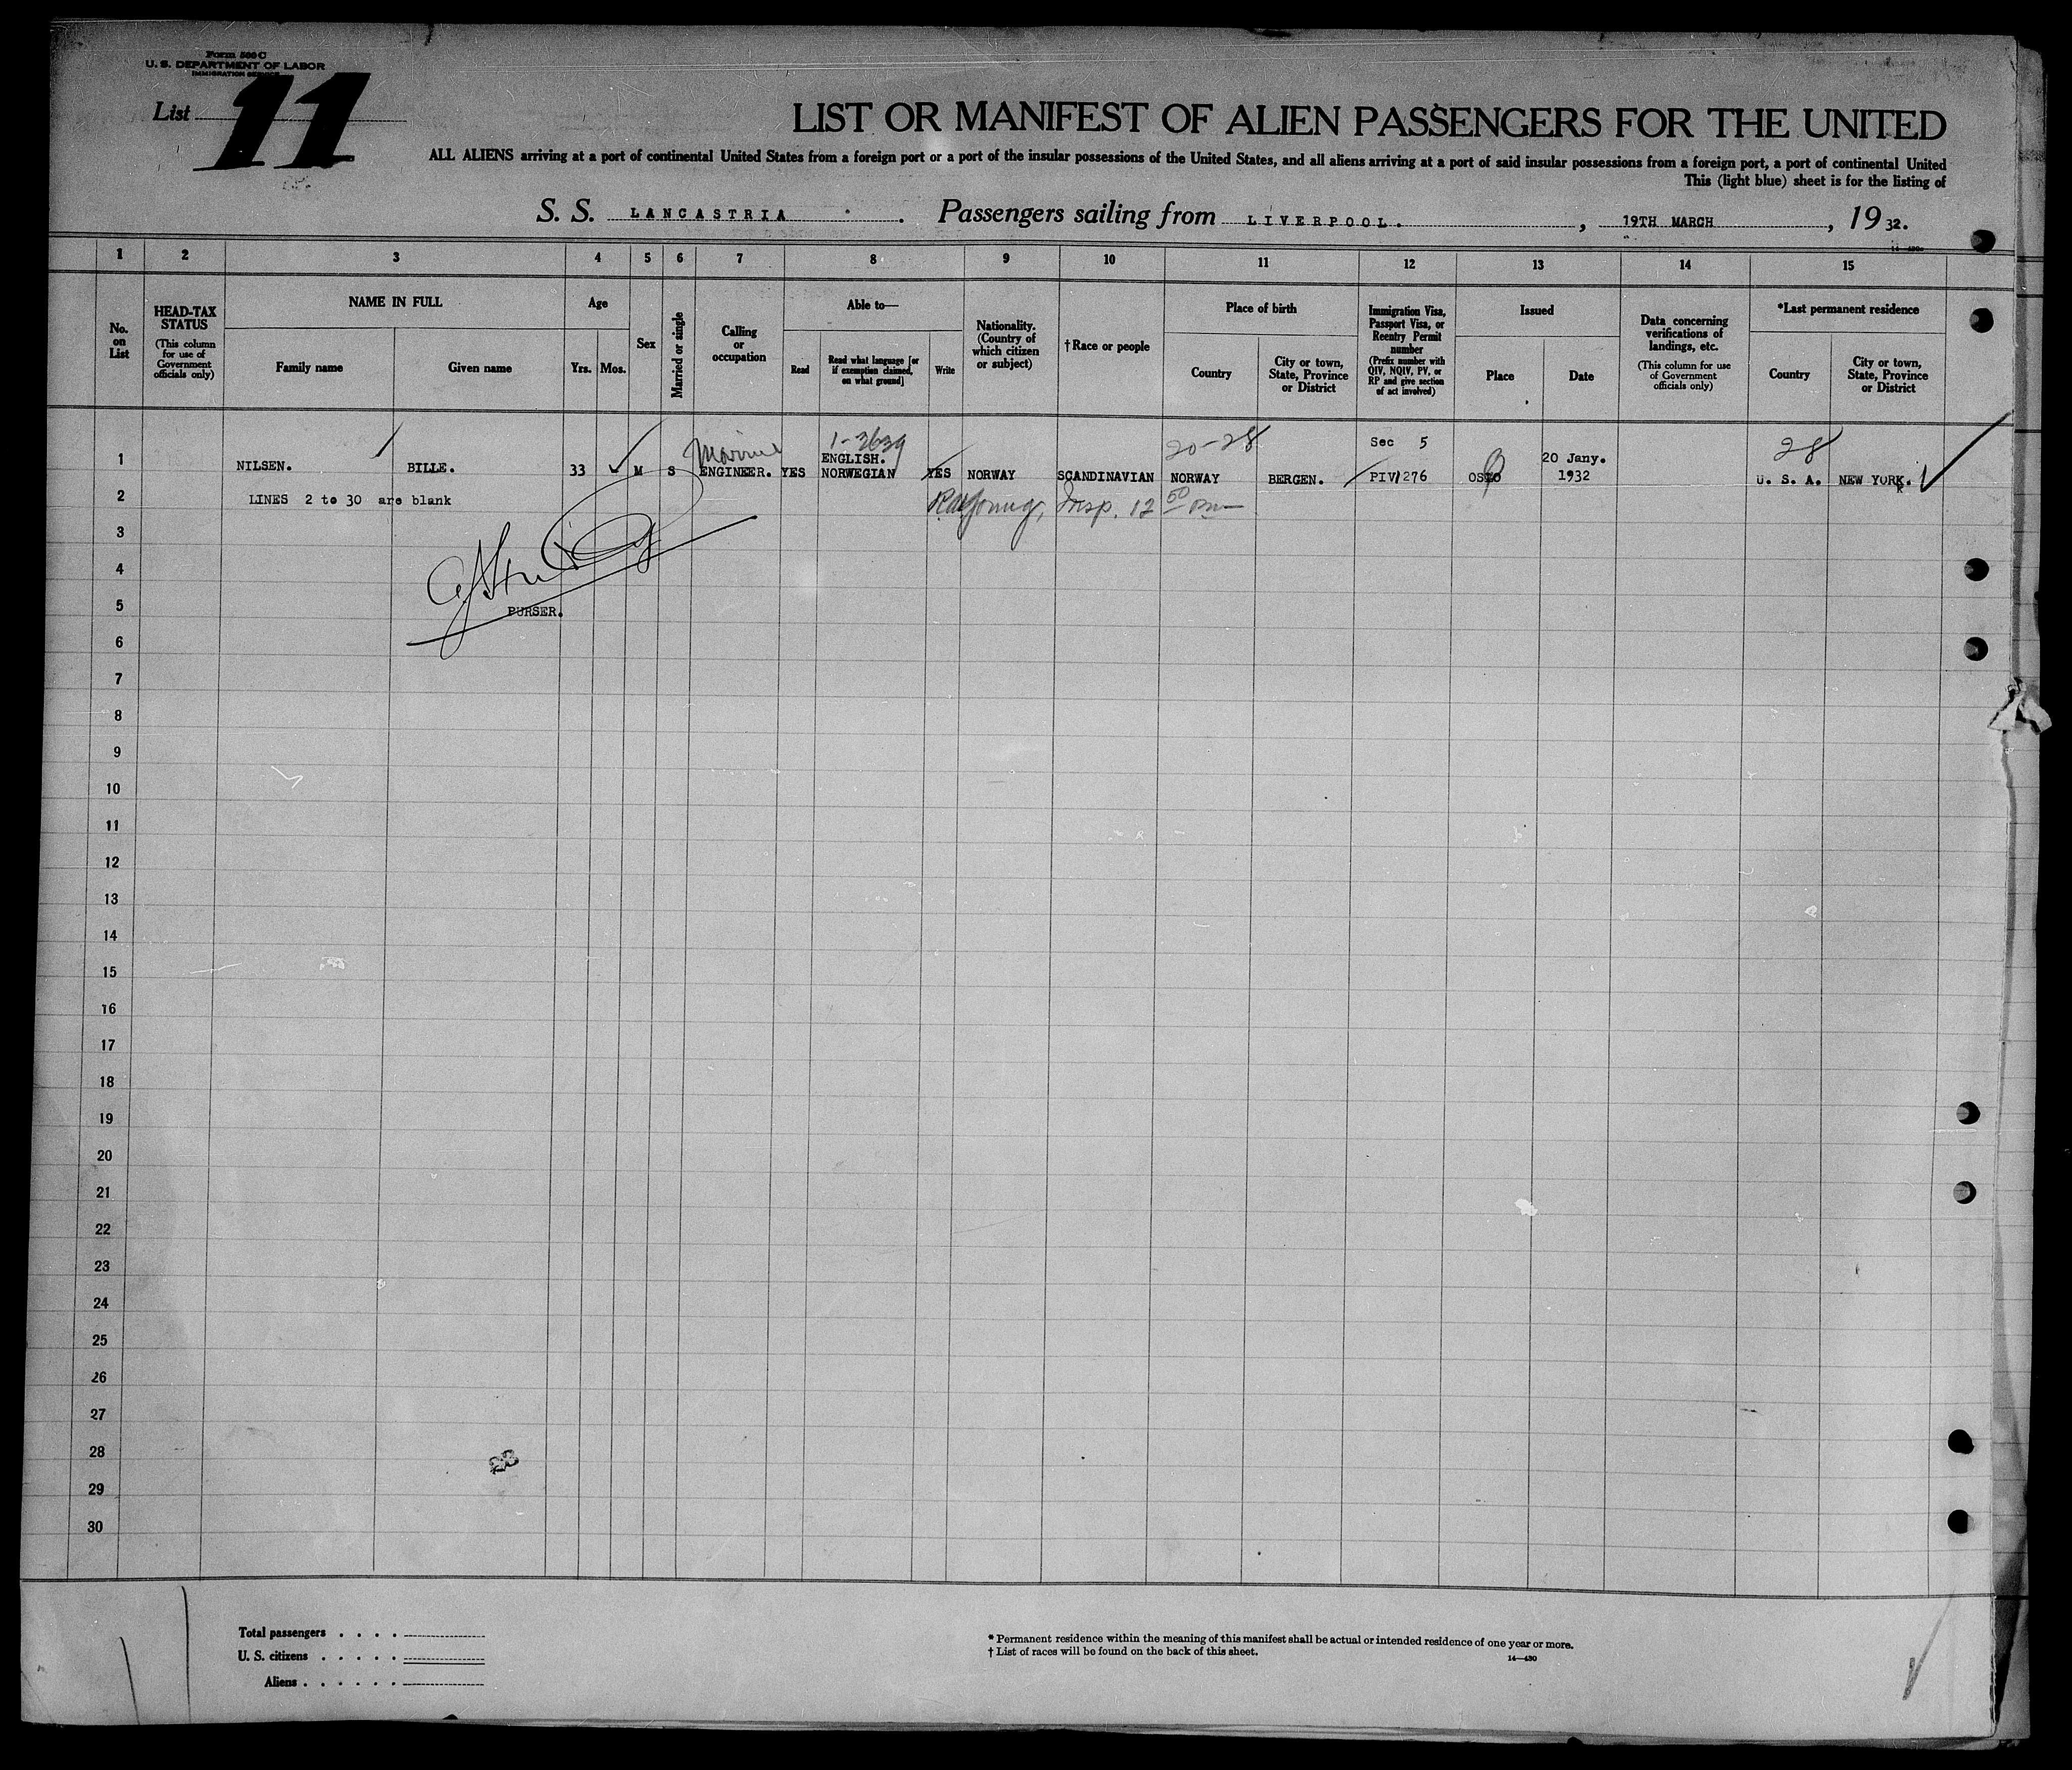 Form 500 C
U. S. DEPARTMENT OF LABOR
IMMIGRATION SERVICE
List 11
LIST OR MANIFEST OF ALIEN PASSENGERS FOR THE UNITED
ALL ALIENS arriving at a port of continental United States from a foreign port or a port of the insular possessions of the United States, and all aliens arriving at a port of said insular possessions from a foreign port, a port of continental United
This (light blue) sheet is for the listing of
S. S. LANCASTRIA . Passengers sailing from LIVERPOOL. , 19TH MARCH , 19 32.
1 2 3 4 5 6 7 8 9 10 11 12 13 14 15
No. on List
HEAD-TAX STATUS (This column for use of Government officials only)
NAME IN FULL
Family name
Given name
Age
Yrs. Mos.
Sex
Married or single
Calling or occupation
Able to—
Read
Read what language [or if exemption claimed, on what ground]
Write
Nationality. (Country of which citizen or subject)
†Race or people
Place of birth
Country
City or town, State, Province or District
Immigration Visa, Passport Visa, or Reentry Permit number (Prefix number with QIV, NQIV, PV, or RP and give section of act involved)
Issued
Place
Date
Data concerning verifications of landings, etc. (This column for use of Government officials only)
*Last permanent residence
Country
City or town, State, Province or District
Marine 20-28 Sec 5 28
ENGLISH. 20 Jany.
1 NILSEN. BILLE. 33 M S ENGINEER. YES NORWEGIAN YES NORWAY SCANDINAVIAN NORWAY BERGEN. PIV/276 OSLO 1932 U. S. A. NEW YORK.
2 LINES 2 to 30 are blank
Insp. 12 50 pm
3
4
5
PURSER.
6
7
8
9
10
11
12
13
14
15
16
17
18
19
20
21
22
23
24
25
26
27
28
29
30
Total passengers . . . .
U. S. citizens . . . . .
Aliens . . . . . .
* Permanent residence within the meaning of this manifest shall be actual or intended residence of one year or more.
† List of races will be found on the back of this sheet.
14—430